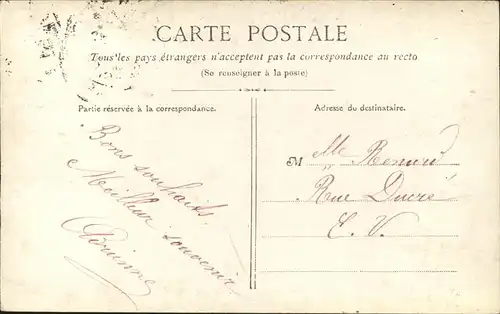 CARTE POSTALE
Tous les pays étrangers n'acceptent pas la correspondance au recto
(Se renseigner à la poste)
Partie réservée à la correspondance.
Bons souhaits,
Meilleur souvenir
Adrienne
Adresse du destinataire.
M lle Renard
Rue Ducré
E. V.